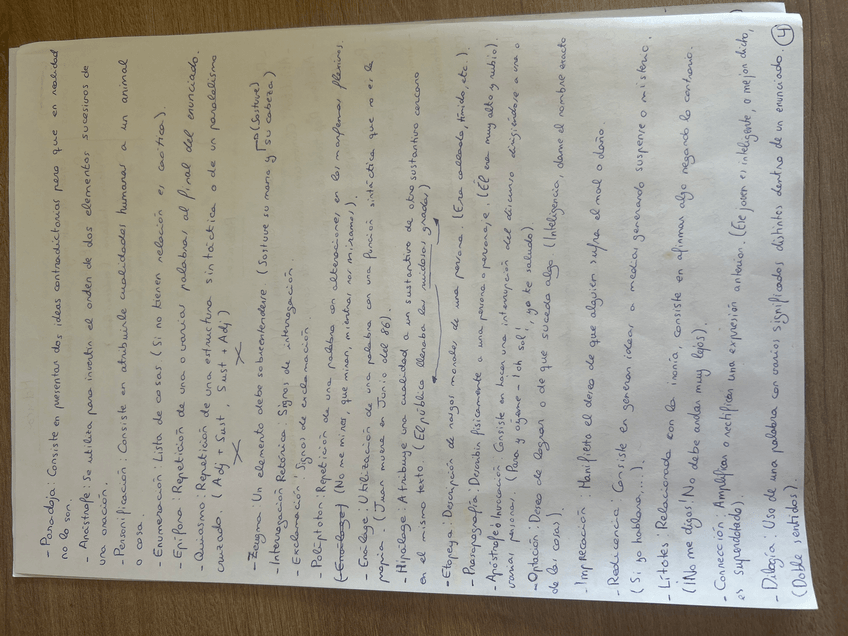 - Paradoja: Consiste en presentar dos ideas contradictorias pero que en realidad
no lo son.
- Anástrofe: Se utiliza para invertir el orden de dos elementos sucesivos de
una oración.
- Personificación: Consiste en atribuirle cualidades humanas a un animal
o cosa.
- Enumeración: Lista de cosas (Si no tienen relación es caótica).
- Epífora: Repetición de una o varias palabras al final del enunciado.
- Quiasmo: Repetición de una estructura sintáctica o de un paralelismo
cruzado. (Adj + Sust, Sust + Adj)
- Zeugma: Un elemento debe sobreentenderse (Sostuve su mano y su cabeza)
(Sostuve)
- Interrogación Retórica: Signos de interrogación.
- Exclamación: Signos de exclamación.
- Políptoton: Repetición de una palabra con alteraciones, en los morfemas flexivos.
(No me mires, que miran, mientras nos miramos).
- Enálage: Utilización de una palabra con una función sintáctica que no es la
propia. (Juan muere en Junio del 86).
- Hipálage: Atribuye una cualidad a un sustantivo de otro sustantivo cercano
en el mismo texto. (El público llenaba las ruidosas gradas)
- Etopeya: Descripción de rasgos morales de una persona. (Era callada, tímida, etc.).
- Prosopografía: Describir físicamente a una persona o personaje. (Él era muy alto y rubio).
- Apóstrofe ó Invocación: Consiste en hacer una interrupción del discurso dirigiéndose a una o
varias personas. (Para y óyeme ¡oh sol!, yo te saludo).
- Optación: Deseo de lograr o de que suceda algo (Inteligencia, dame el nombre exacto
de las cosas).
- Imprecación: Manifiesta el deseo de que alguien sufra el mal o daño.
- Reticencia: Consiste en generar ideas a medias, generando suspense o misterio.
(Si yo hablara...).
- Litotes: Relacionada con la ironía, consiste en afirmar algo negando lo contrario.
(¡No me digas! No debe andar muy lejos).
- Corrección: Amplificar o rectificar una expresión anterior. (Ese joven es inteligente, o mejor dicto,
es superdotado).
- Dilogía: Uso de una palabra con varios significados distintos dentro de un enunciado.
(Doble sentidos).
4